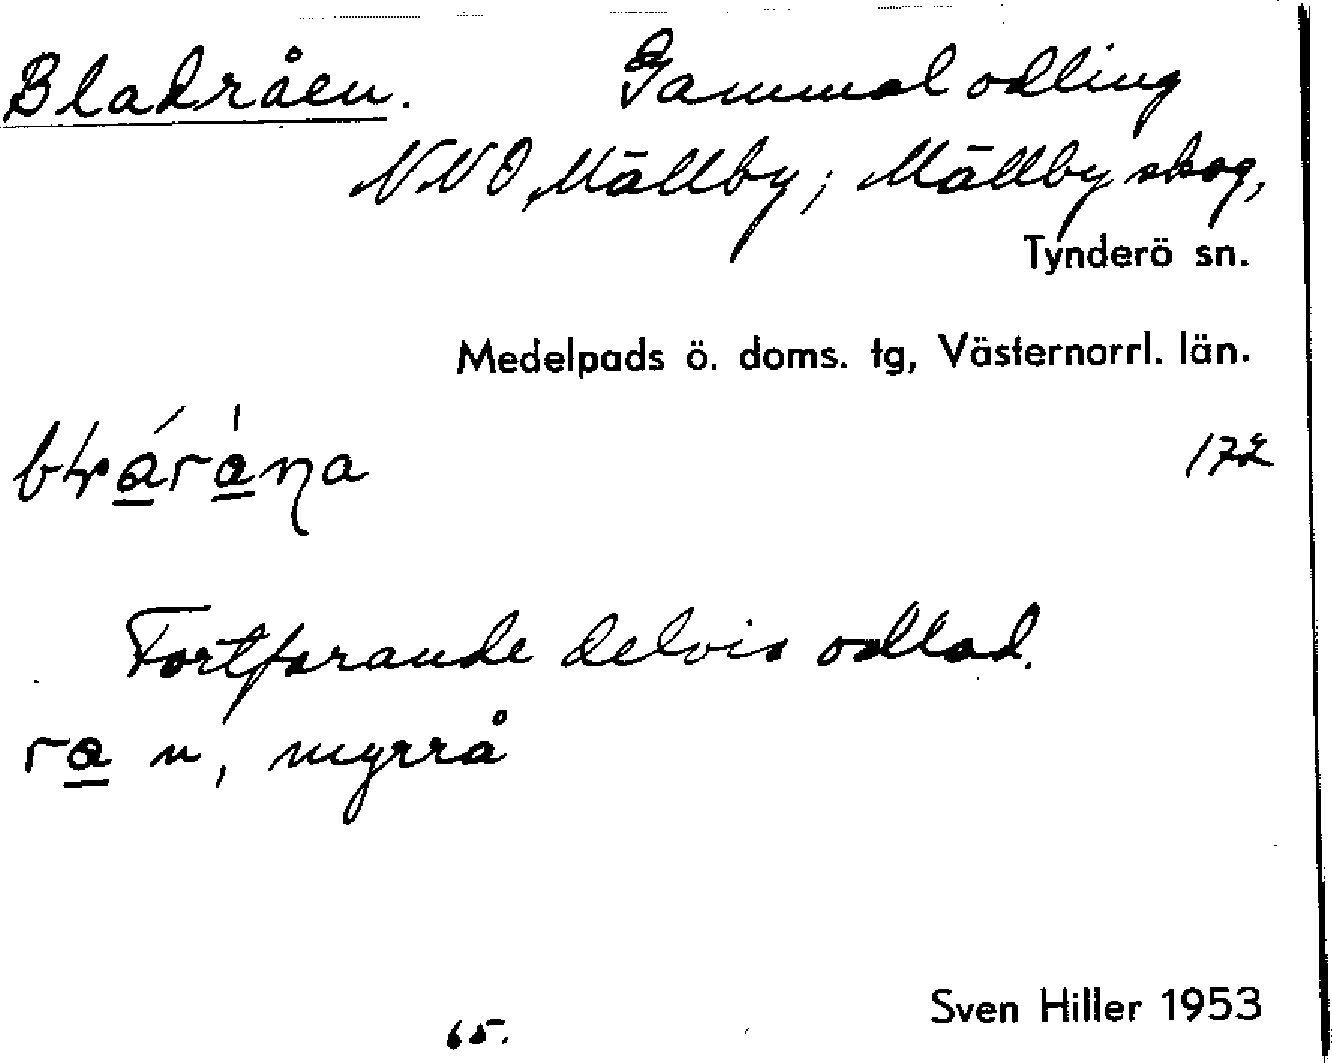 Bladråen. Gammal odling
NNO Mällby; Mällby skog,
Tynderö sn.
Medelpads ö. doms. tg, Västernorrl. län.
172
Fortfarande delvis odlad.
ra n, myrrå
Sven Hiller 1953
65.